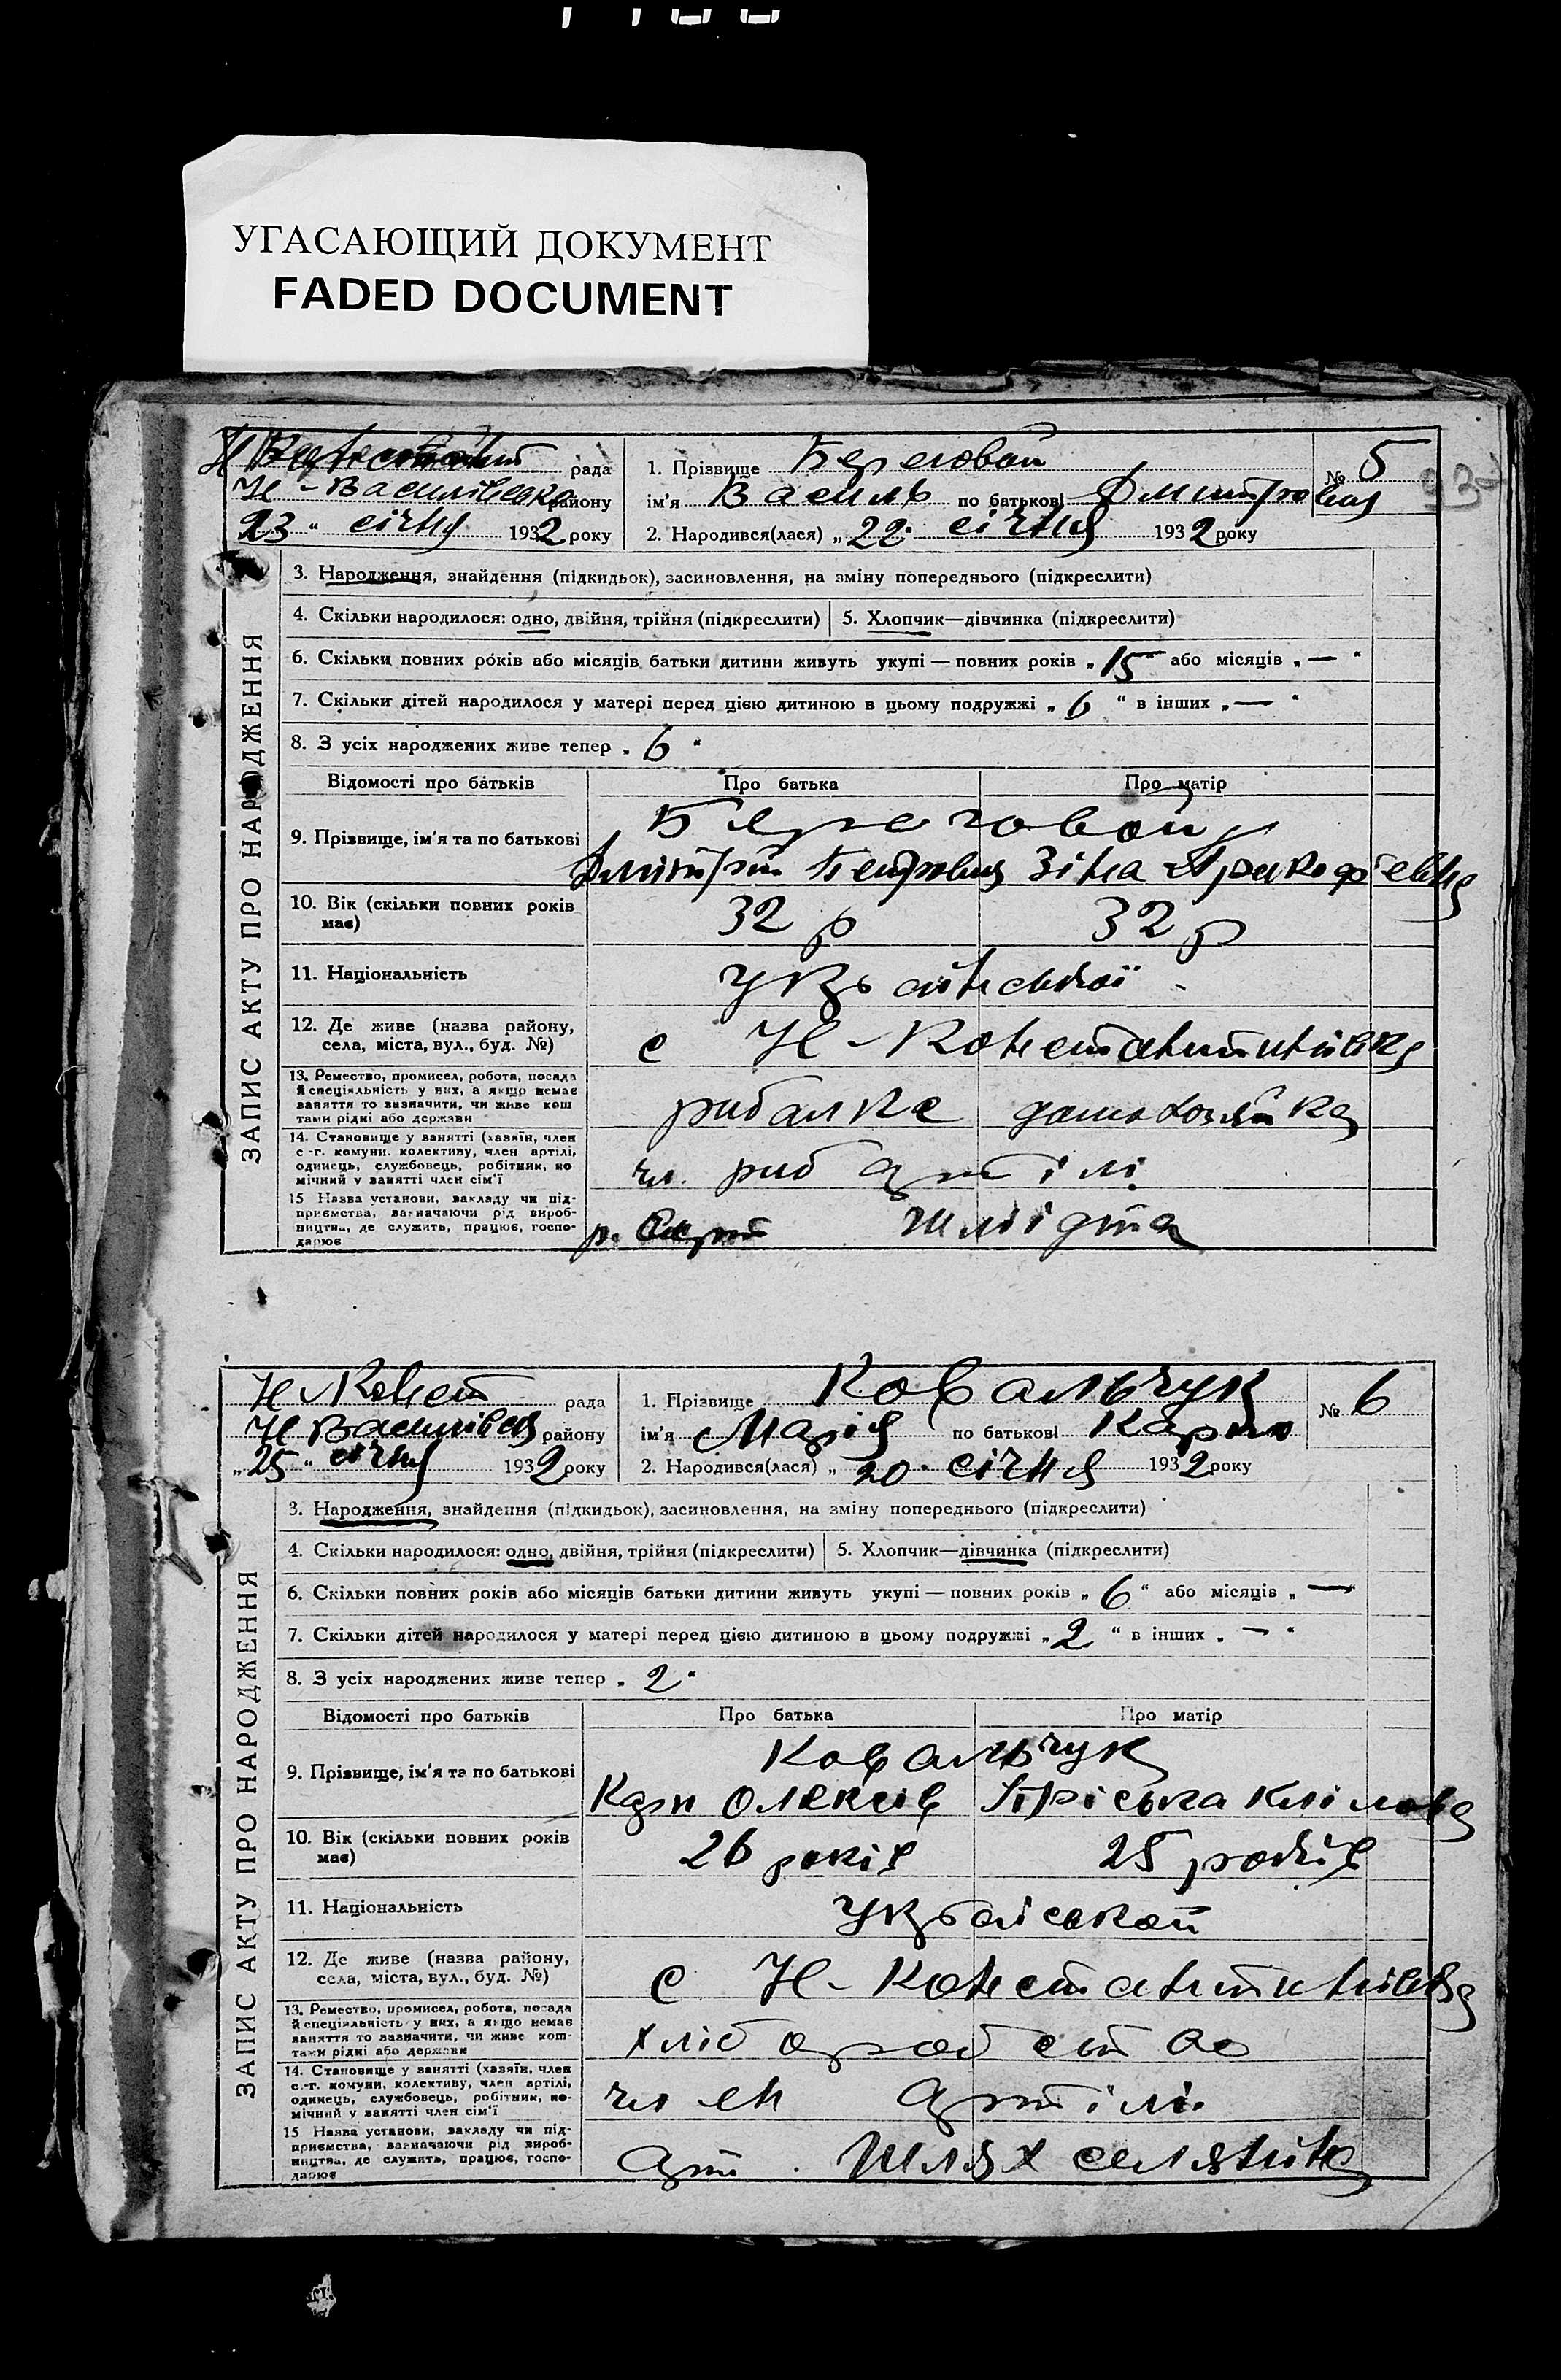 УГАСАЮЩИЙ ДОКУМЕНТ
FADED DOCUMENT
рада
Н-Василівського району
23 " січня 1932 року
1. Прізвище Береговой
№ 5
ім'я Василь по батькові Дмитрович
2. Народився(лася) „ 22. січня 1932 року
ЗАПИС АКТУ ПРО НАРОДЖЕННЯ
3. Народження, знайдення (підкидьок), засиновлення, на зміну попереднього (підкреслити)
4. Скільки народилося: одно, двійня, трійня (підкреслити) 5. Хлопчик—дівчинка (підкреслити)
6. Скільки повних років або місяців батьки дитини живуть укупі — повних років „ 15 " або місяців „ — "
7. Скільки дітей народилося у матері перед цією дитиною в цьому подружжі „ 6 " в інших „ — "
8. З усіх народжених живе тепер „ 6 "
Відомості про батьків Про батька Про матір
9. Прізвище, ім'я та по батькові
Береговой
Петрович Зіна
10. Вік (скільки повних років має) 32 р 32 р
11. Національність української
12. Де живе (назва району, села, міста, вул., буд. №) с Н-Константинівка
13. Ремество, промисел, робота, посада
й спеціяльність у них, а якщо немає
заняття то зазначити, чи живе кош
тами рідні або держави
рибалка домохозяйка
14. Становище у занятті (хазяїн, член
с.-г. комуни, колективу, член артілі,
одинець, службовець, робітник, по
мічний у занятті член сім'ї
чл. риб артілі
15 Назва установи, закладу чи під-
приємства, зазначаючи рід вироб-
ництва, де служить, працює, госпо-
дарює
Шмідта
Н-Конст рада
Н Василівськ району
„ 25 " січня 1932 року
1. Прізвище Ковальчук
№ 6
ім'я Марія по батькові Карпо
2. Народився(лася) „ 20. січня 1932 року
ЗАПИС АКТУ ПРО НАРОДЖЕННЯ
3. Народження, знайдення (підкидьок), засиновлення, на зміну попереднього (підкреслити)
4. Скільки народилося: одно, двійня, трійня (підкреслити) 5. Хлопчик—дівчинка (підкреслити)
6. Скільки повних років або місяців батьки дитини живуть укупі — повних років „ 6 " або місяців „ — "
7. Скільки дітей народилося у матері перед цією дитиною в цьому подружжі „ 2 " в інших „ — "
8. З усіх народжених живе тепер „ 2 "
Відомості про батьків Про батька Про матір
9. Прізвище, ім'я та по батькові
Ковальчук
Карп Олексів Пріська Клімова
10. Вік (скільки повних років має) 26 років 25 років
11. Національність
12. Де живе (назва району, села, міста, вул., буд. №) с Н-Константинівка
13. Ремество, промисел, робота, посада
й спеціяльність у них, а якщо немає
заняття то зазначити, чи живе кош-
тами рідні або держави
хліборобство
14. Становище у занятті (хазяїн, член
с.-г. комуни, колективу, член артілі,
одинець, службовець, робітник, по-
мічний у занятті член сім'ї
член артілі
15 Назва установи, закладу чи під-
приємства, зазначаючи рід вироб-
ництва, де служить, працює, госпо-
дарює
арт. Шлях селяніна